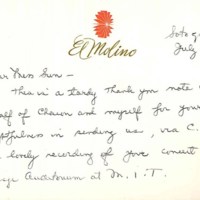 El Molino
July
This is a tardy thank you note
of Chawn and myself for your
in sending us, via C.
lovely recording of your concert
Auditorium at M.I.T.